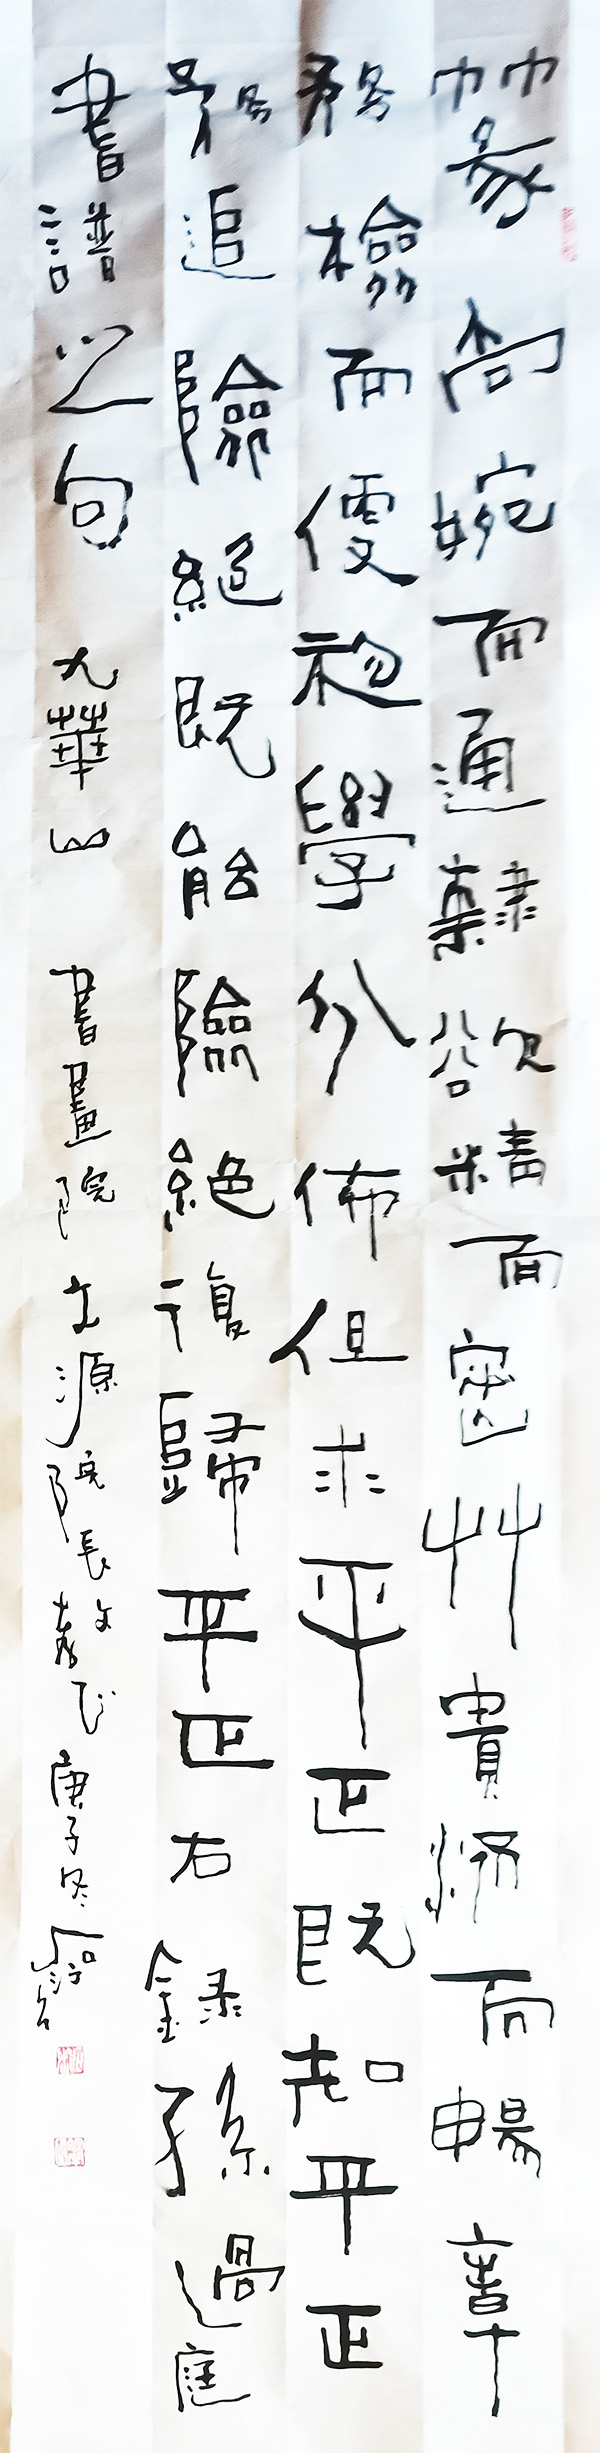 篆尚婉而通隸欲精而密艸貴流而暢章
務檢而便初學分佈但求平正既知平正
務追險絕既能險絕復歸平正右錄孫過庭
書譜之句 九華山 書畫院文源院長教正 庚子冬